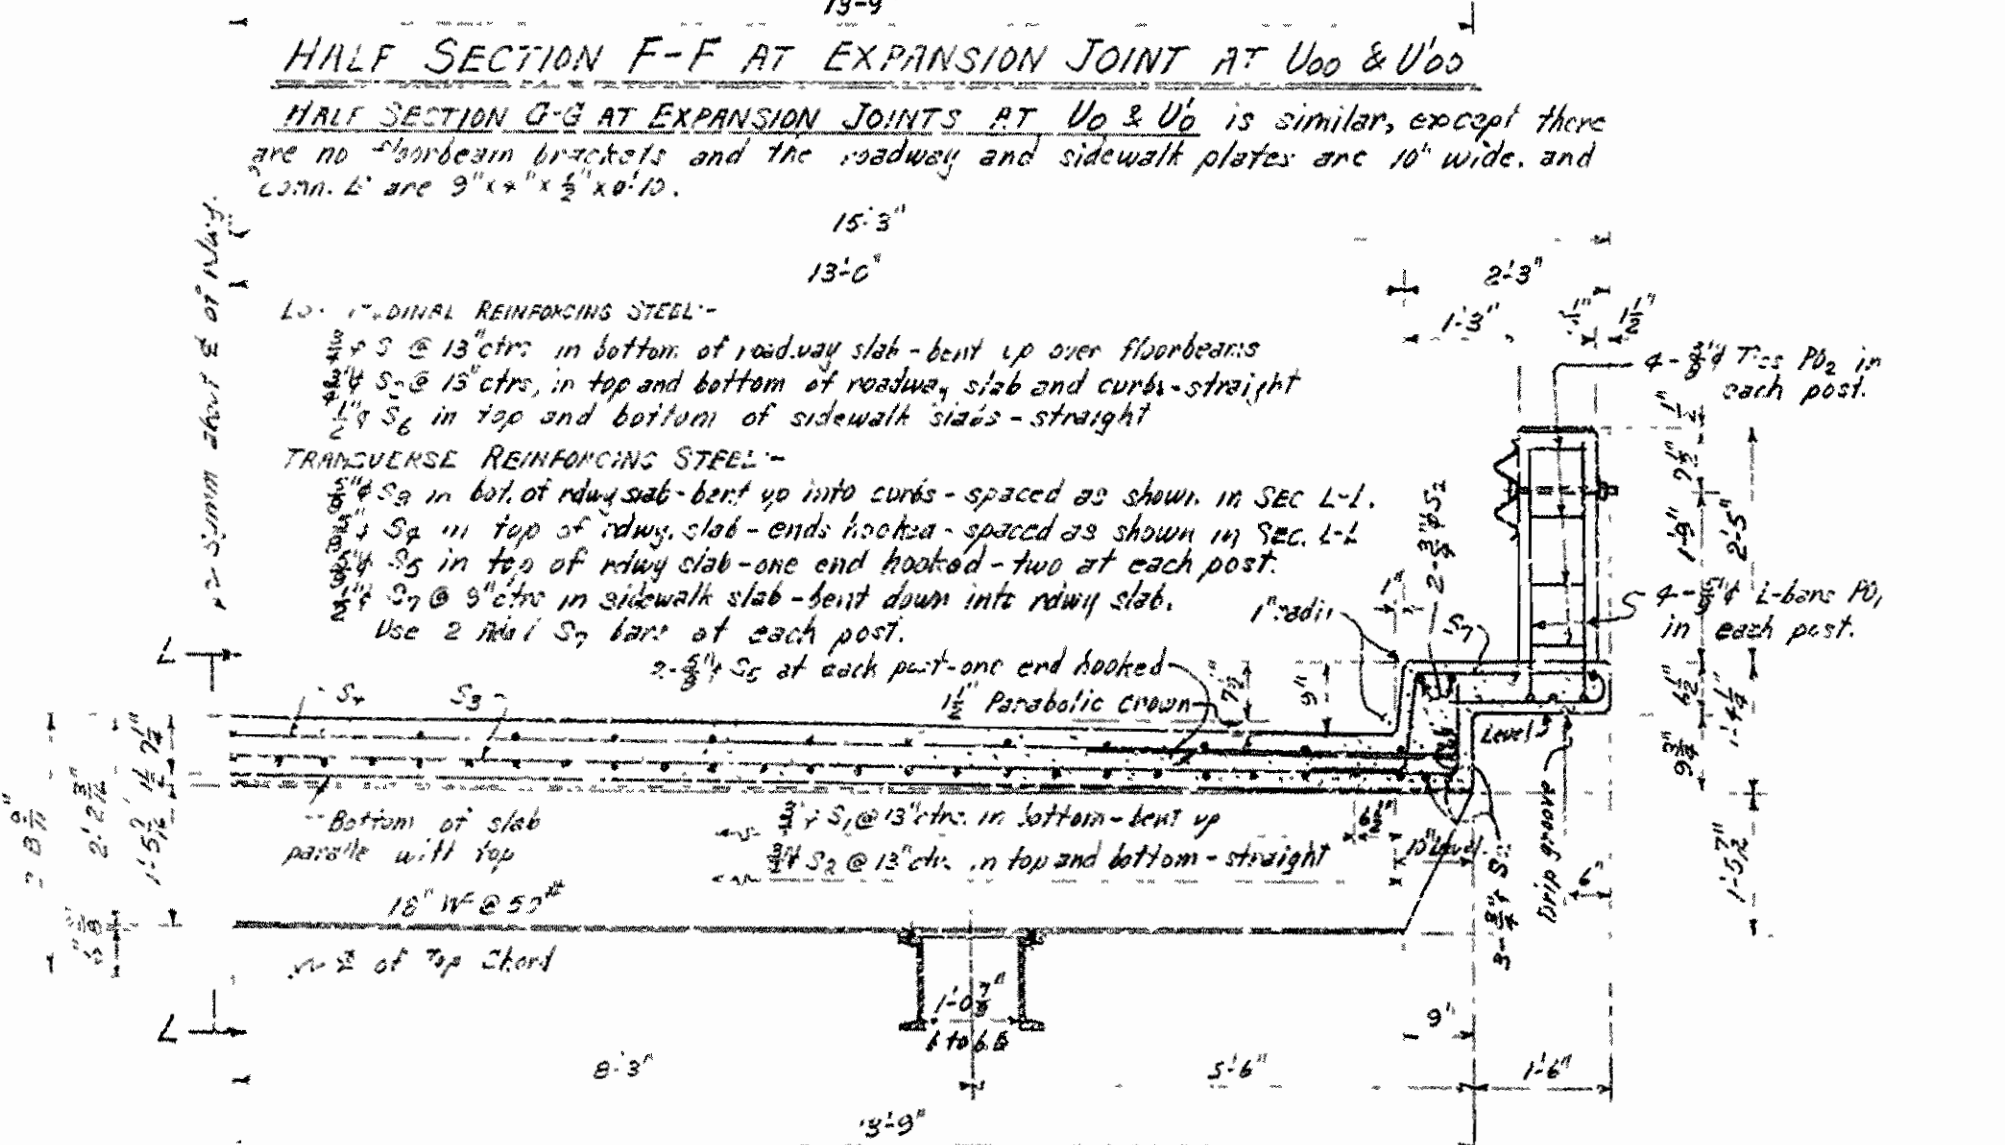 13-9
HALF SECTION F-F AT EXPANSION JOINT AT U00 & U'00
HALF SECTION G-G AT EXPANSION JOINTS AT U0 & U'0 is similar, except there
are no floorbeam brackets and the roadway and sidewalk plates are 10" wide. and
conn. Ls are 9"x4"x½"x0'-10.
15'-3"
13'-0"
2'-3"
1'-3"
1½"
Symm about ℄ of rdwy.
REINFORCING STEEL:-
@ 13"ctrs in bottom of roadway slab - bent up over floorbeams
@ 13"ctrs, in top and bottom of roadway slab and curbs - straight
½"ϕ S6 in top and bottom of sidewalk slabs - straight
TRANSVERSE REINFORCING STEEL:-
S3 in bot. of rdwy slab - bent up into curbs - spaced as shown in SEC L-L.
S4 in top of rdwy. slab - ends hooked - spaced as shown in SEC. L-L
S5 in top of rdwy slab - one end hooked - two at each post.
S7 @ 9"ctrs in sidewalk slab - bent down into rdwy slab.
Use 2 Add'l S7 bars at each post.
2-⅝"ϕ S5 at each post-one end hooked
1½" Parabolic Crown
4-⅜"ϕ Ties PO2 in
each post.
4-⅝"ϕ L-bars PO1
in each post.
2-¾"ϕ S2
1" radii
1"
S7
7½"
9"
½"
1'-9"
2'-5"
6½"
9¾"
1'-4¼"
Level
L
S4
S3
7¼"
Bottom of slab
parallel with top
¾"ϕ S1 @ 13"ctrs. in bottom - bent up
¾"ϕ S2 @ 13"ctrs. in top and bottom - straight
6½"
10" Level.
Drip groove
6"
18" WF @ 50#
℄ of Top Chord
1'-0⅞"
b to b
L
9"
8'-3"
5'-6"
1'-6"
13'-9"